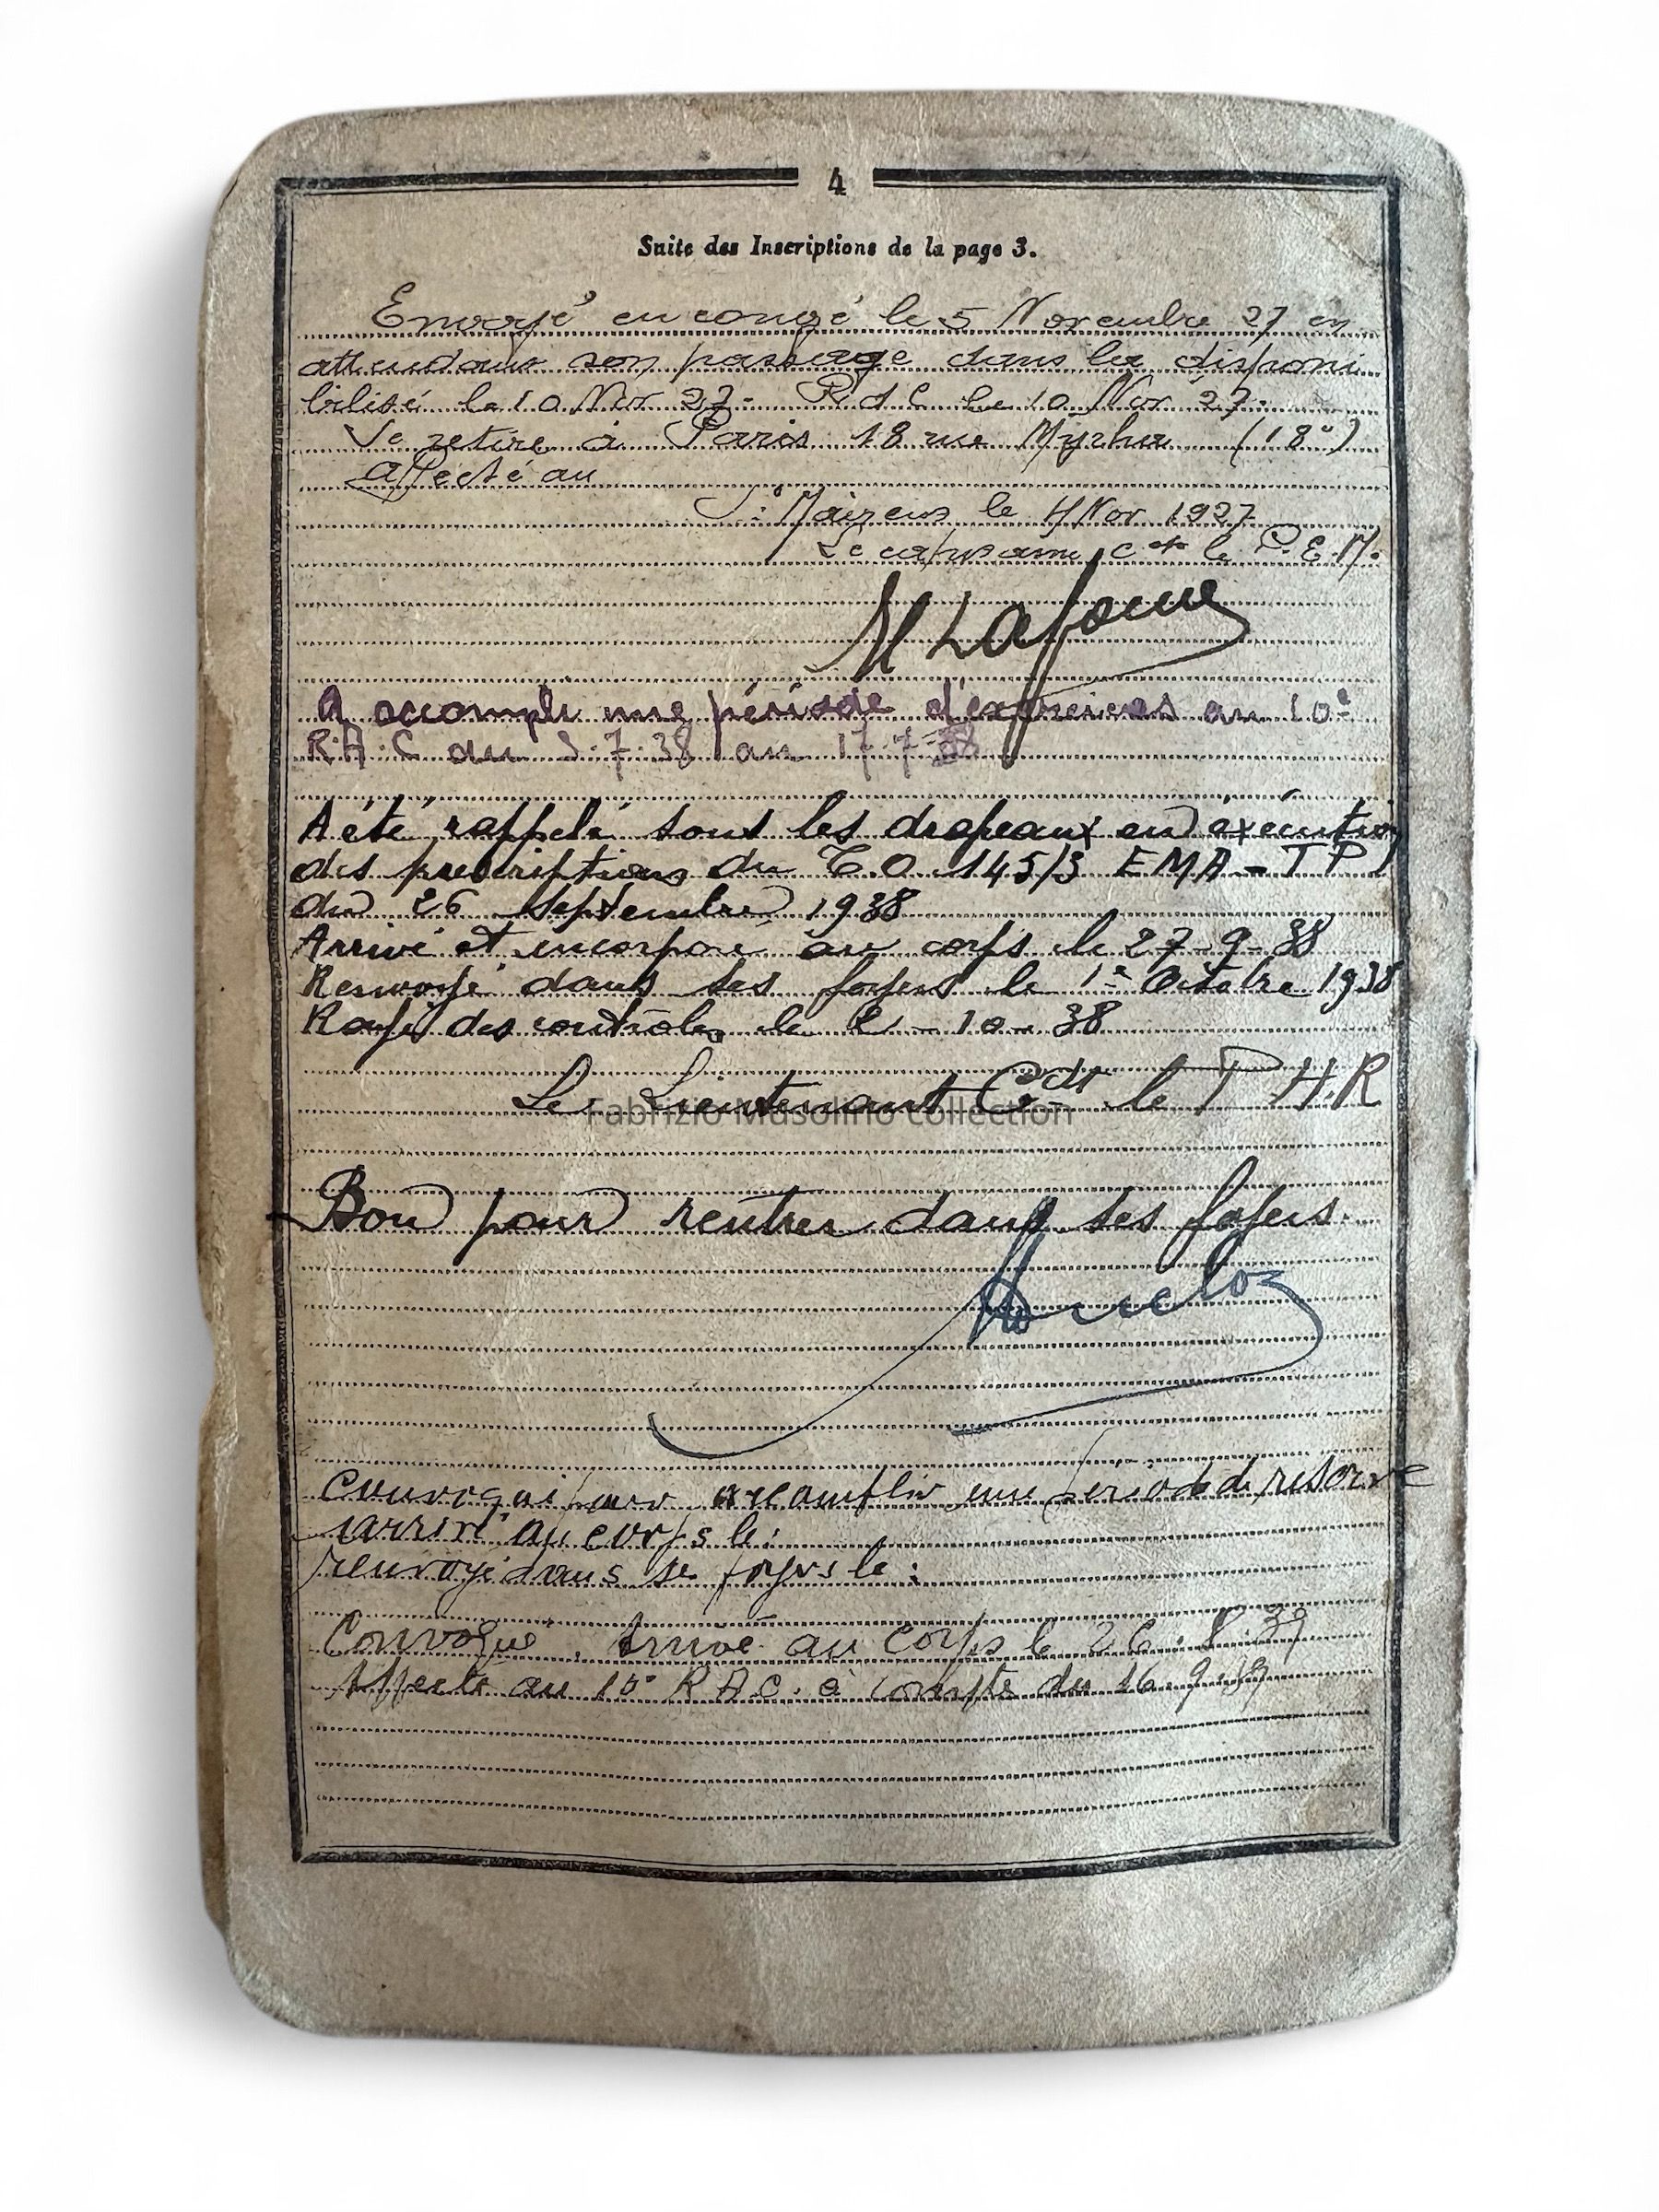 4
Suite des Inscriptions de la page 3.
Envoyé en congé le 5 Novembre 27 en
attendant son passage dans la disponi
bilité le 10 Nov 27. R d C le 10 Nov 27.
Se retire à Paris 18 rue Myrha (18e)
affecté au
St Maixent le 4 Nov 1927
Le capitaine Cdt le P.E.M.
A accompli une période d'exercices au 10e
R.A.C du 3.7.38 au 17.7.38
A été rappelé sous les drapeaux en exécution
des prescriptions du T.O. 145/3 EMA-TP
du 26 septembre 1938
Arrivé et incorporé au corps le 27-9-38
Renvoyé dans ses foyers le 1er Octobre 1938
Rayé des contrôles le 2-10-38
Le Lieutenant Cdt le P H.R
Fabrizio Musolino Collection
Bon pour rentrer dans ses foyers.
Convoqué pour accomplir une période de réserve
arrivé au corps le:
renvoyé dans ses foyers le:
Convoqué. Arrivé au corps le 26.8.39
Affecté au 10e R.A.C. à compter du 16.9.39